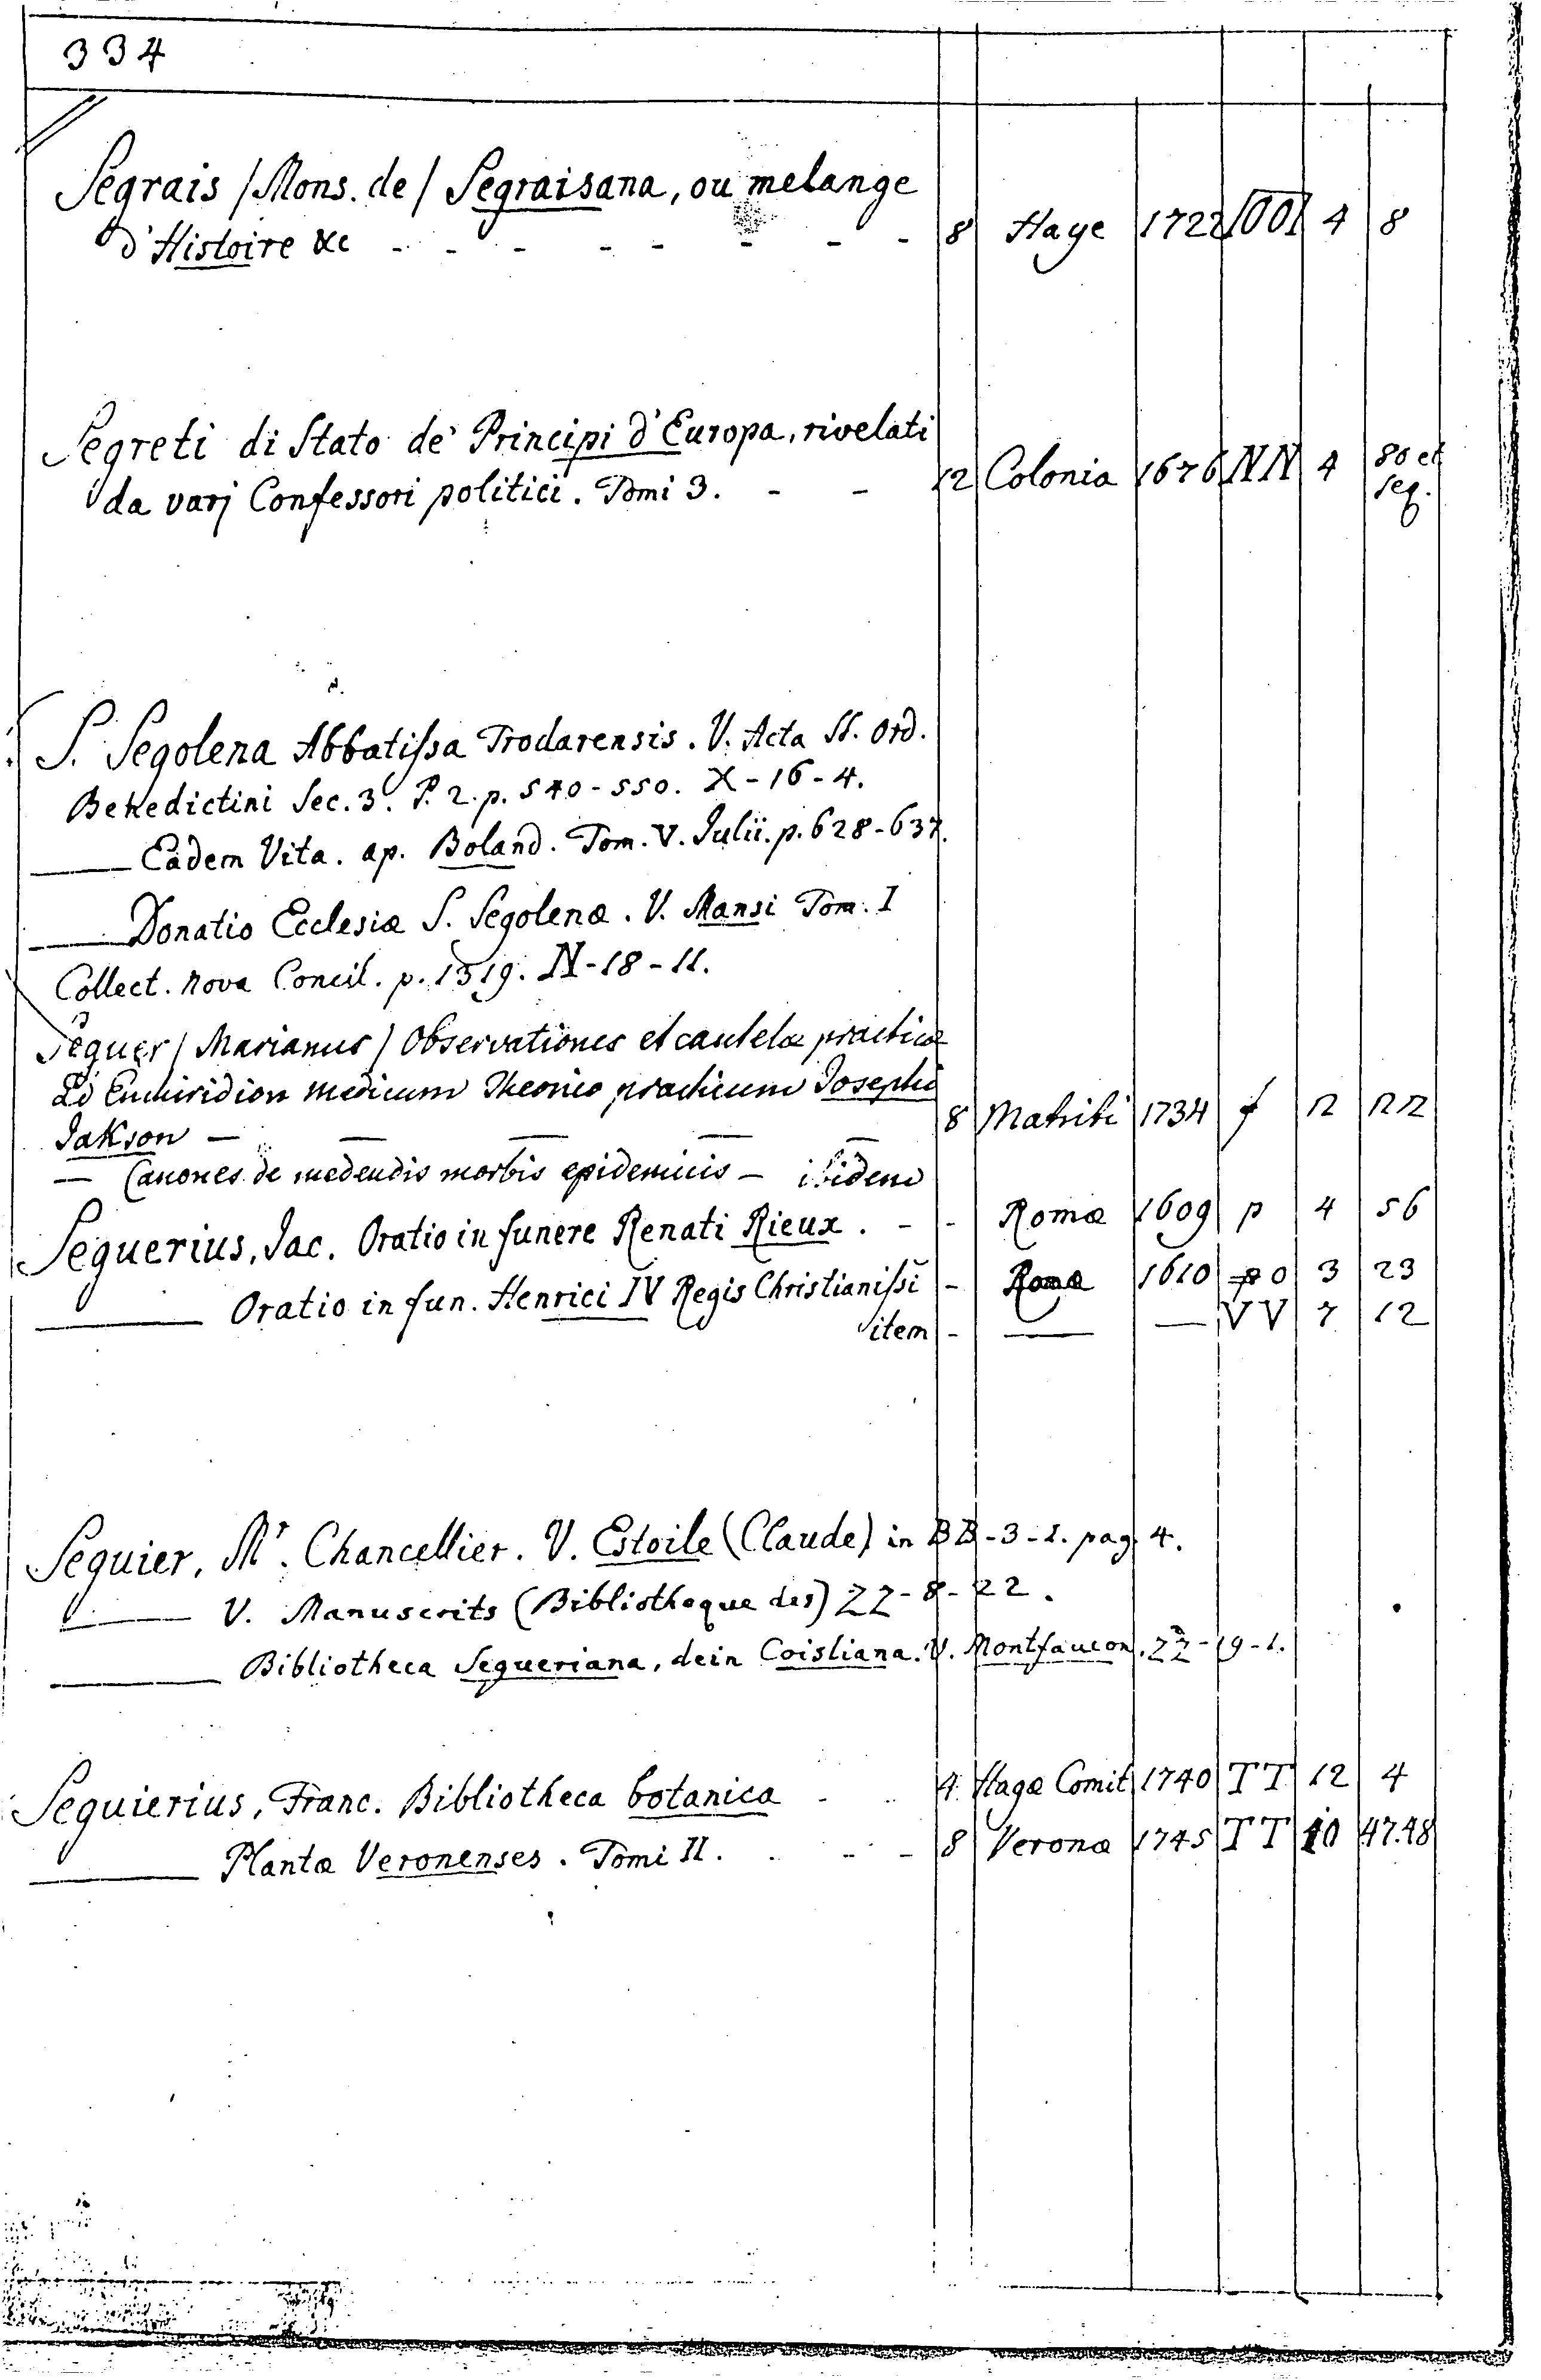 334
Segrais /Mons. de/ Segraisana, ou melange
d'Histoire &c - - - - - - - 8 Haye 1722 4 8
Segreti di Stato de' Principi d'Europa, rivelati
da varj Confessori politici. Tomi 3. - - 12 Colonia 1676 NN 4 80 et
seq.
S. Segolena Abbatissa Trodarensis. V. Acta SS. Ord.
Benedictini Sec. 3. P. 2. p. 540-550. X-16-4.
—— Eadem Vita. ap. Boland. Tom. V. Julii. p. 628-637.
—— Donatio Ecclesiæ S. Segolenæ. V. Mansi Tom. I
Collect. nova Concil. p. 1519. N-18-11.
Seguer / Marianus / Observationes et cautelæ practicæ
ad Enchiridion medicum Theorico practicum Josephi
Jakson — — — — — 8 Matriti 1734 f n nn
— Canones de medendis morbis epidemicis — ibidem
Seguerius, Jac. Oratio in funere Renati Rieux. - - Romæ 1609 p 4 56
—— Oratio in fun. Henrici IV Regis Christianissi - Romæ 1610 o 3 23
item - —— — VV 7 12
Seguier, Mr. Chancellier. V. Estoile (Claude) in BB-3-1. pag. 4.
—— V. Manuscrits (Bibliotheque des) ZZ-8-22.
—— Bibliotheca Segueriana, dein Coisliana. V. Montfaucon. ZZ-19-1.
Seguierius, Franc. Bibliotheca botanica - - 4. Hagæ Comit 1740 TT 12 4
—— Plantæ Veronenses. Tomi II. - - - 8 Veronæ 1745 TT 10 47.48